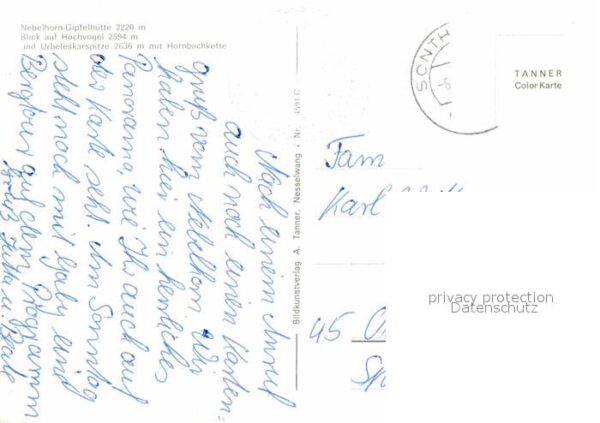 Nebelhorn-Gipfelhütte 2220 m
Blick auf Hochvogel 2594 m
und Urbeleskarspitze 2636 m mit Hornbachkette
Nach einem Anruf
auch noch einen Karten-
gruß vom Nebelhorn. Wir
haben hier ein herrliches
Panorama, wie Ihr auch auf
der Karte seht. Am Sonntag
steht noch mit Gaby eine
Bergtour auf dem Programm
Bildkunstverlag A. Tanner, Nesselwang · Nr.
SONTH
TANNER
Color Karte
Fam
Karl
45
privacy protection
Datenschutz